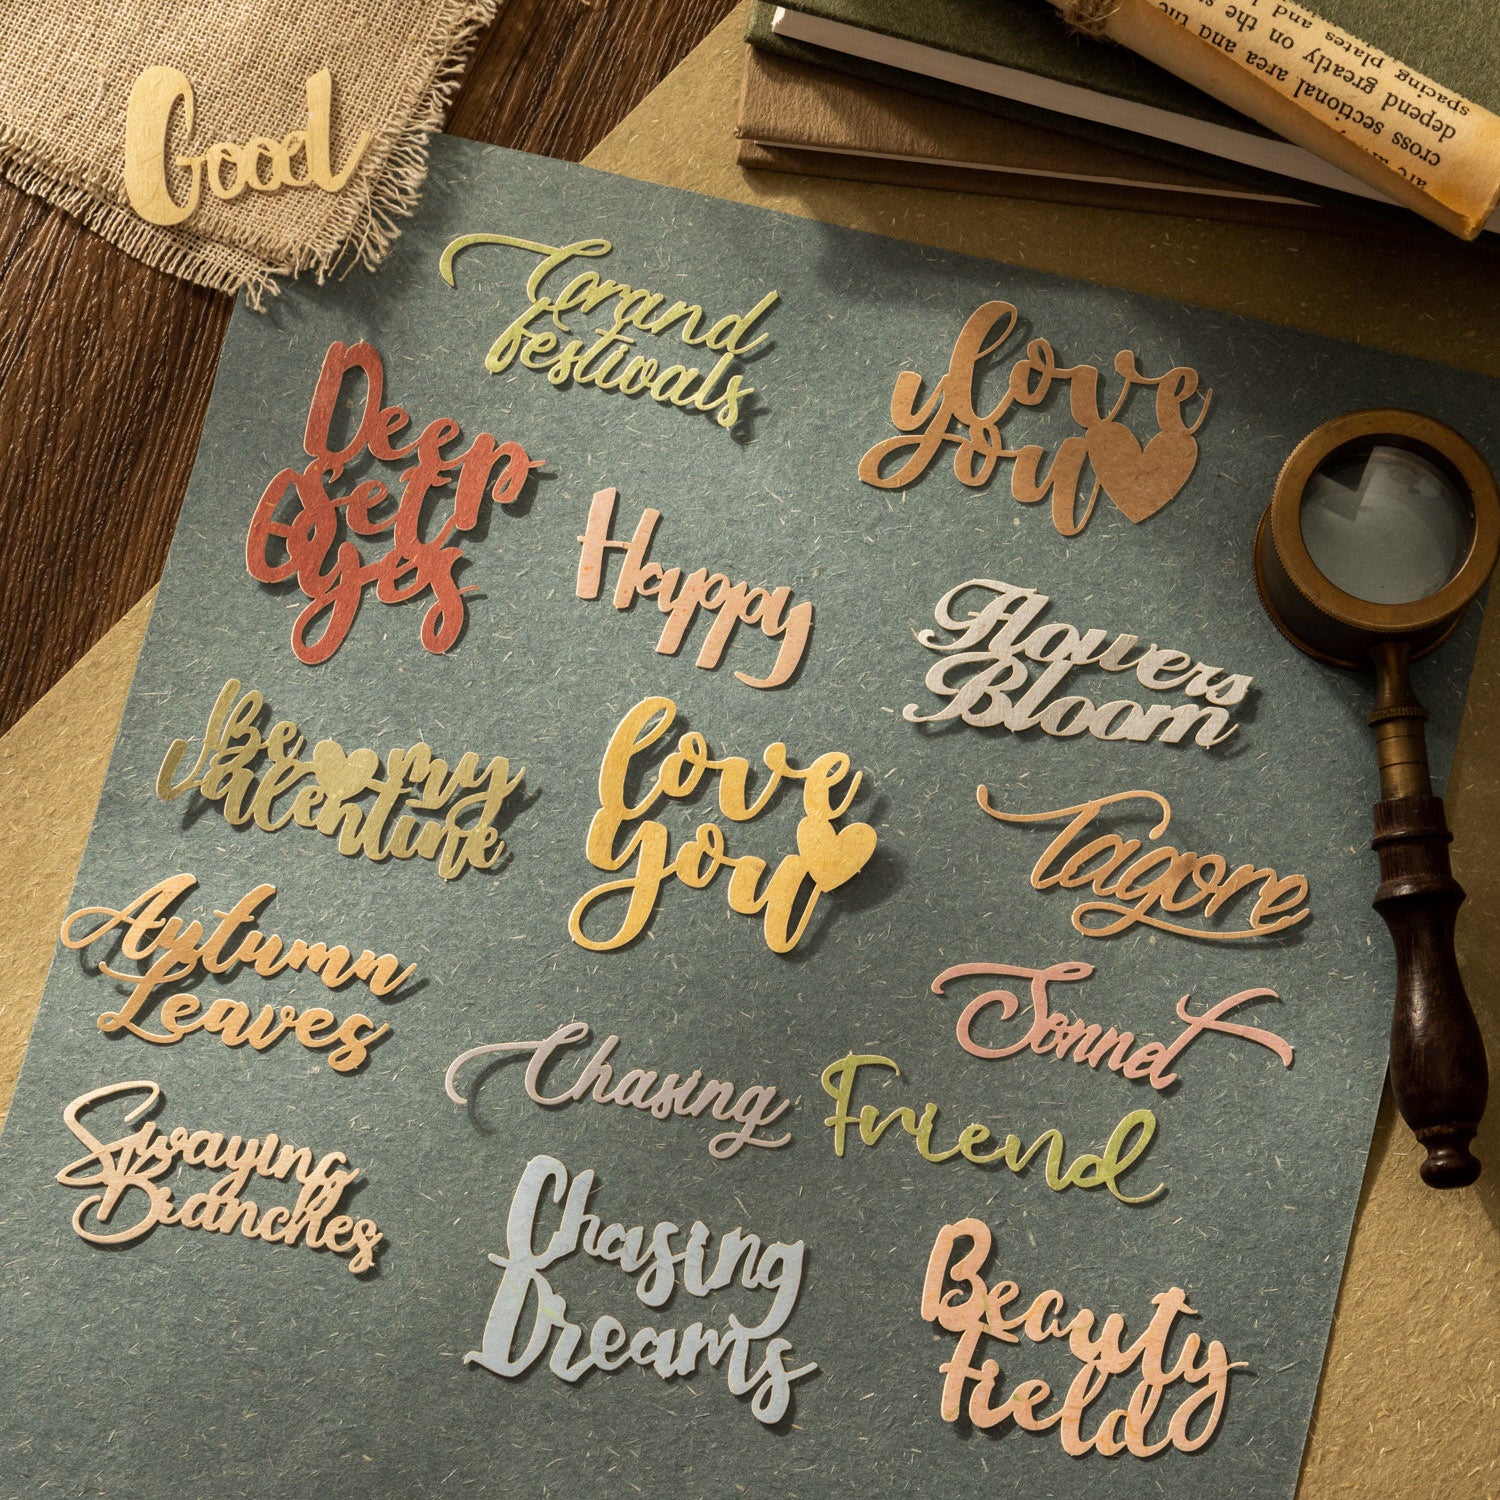 Good
Grand
festivals
love
you
Deep
Set
Eyes
Happy
Flowers
Bloom
Be my
Valentine
love
you
Tagore
Autumn
Leaves
Sonnet
Chasing
Friend
Swaying
Branches
Chasing
Dreams
Beauty
field
cross sectional area and the
depend greatly on the
spacing plates and